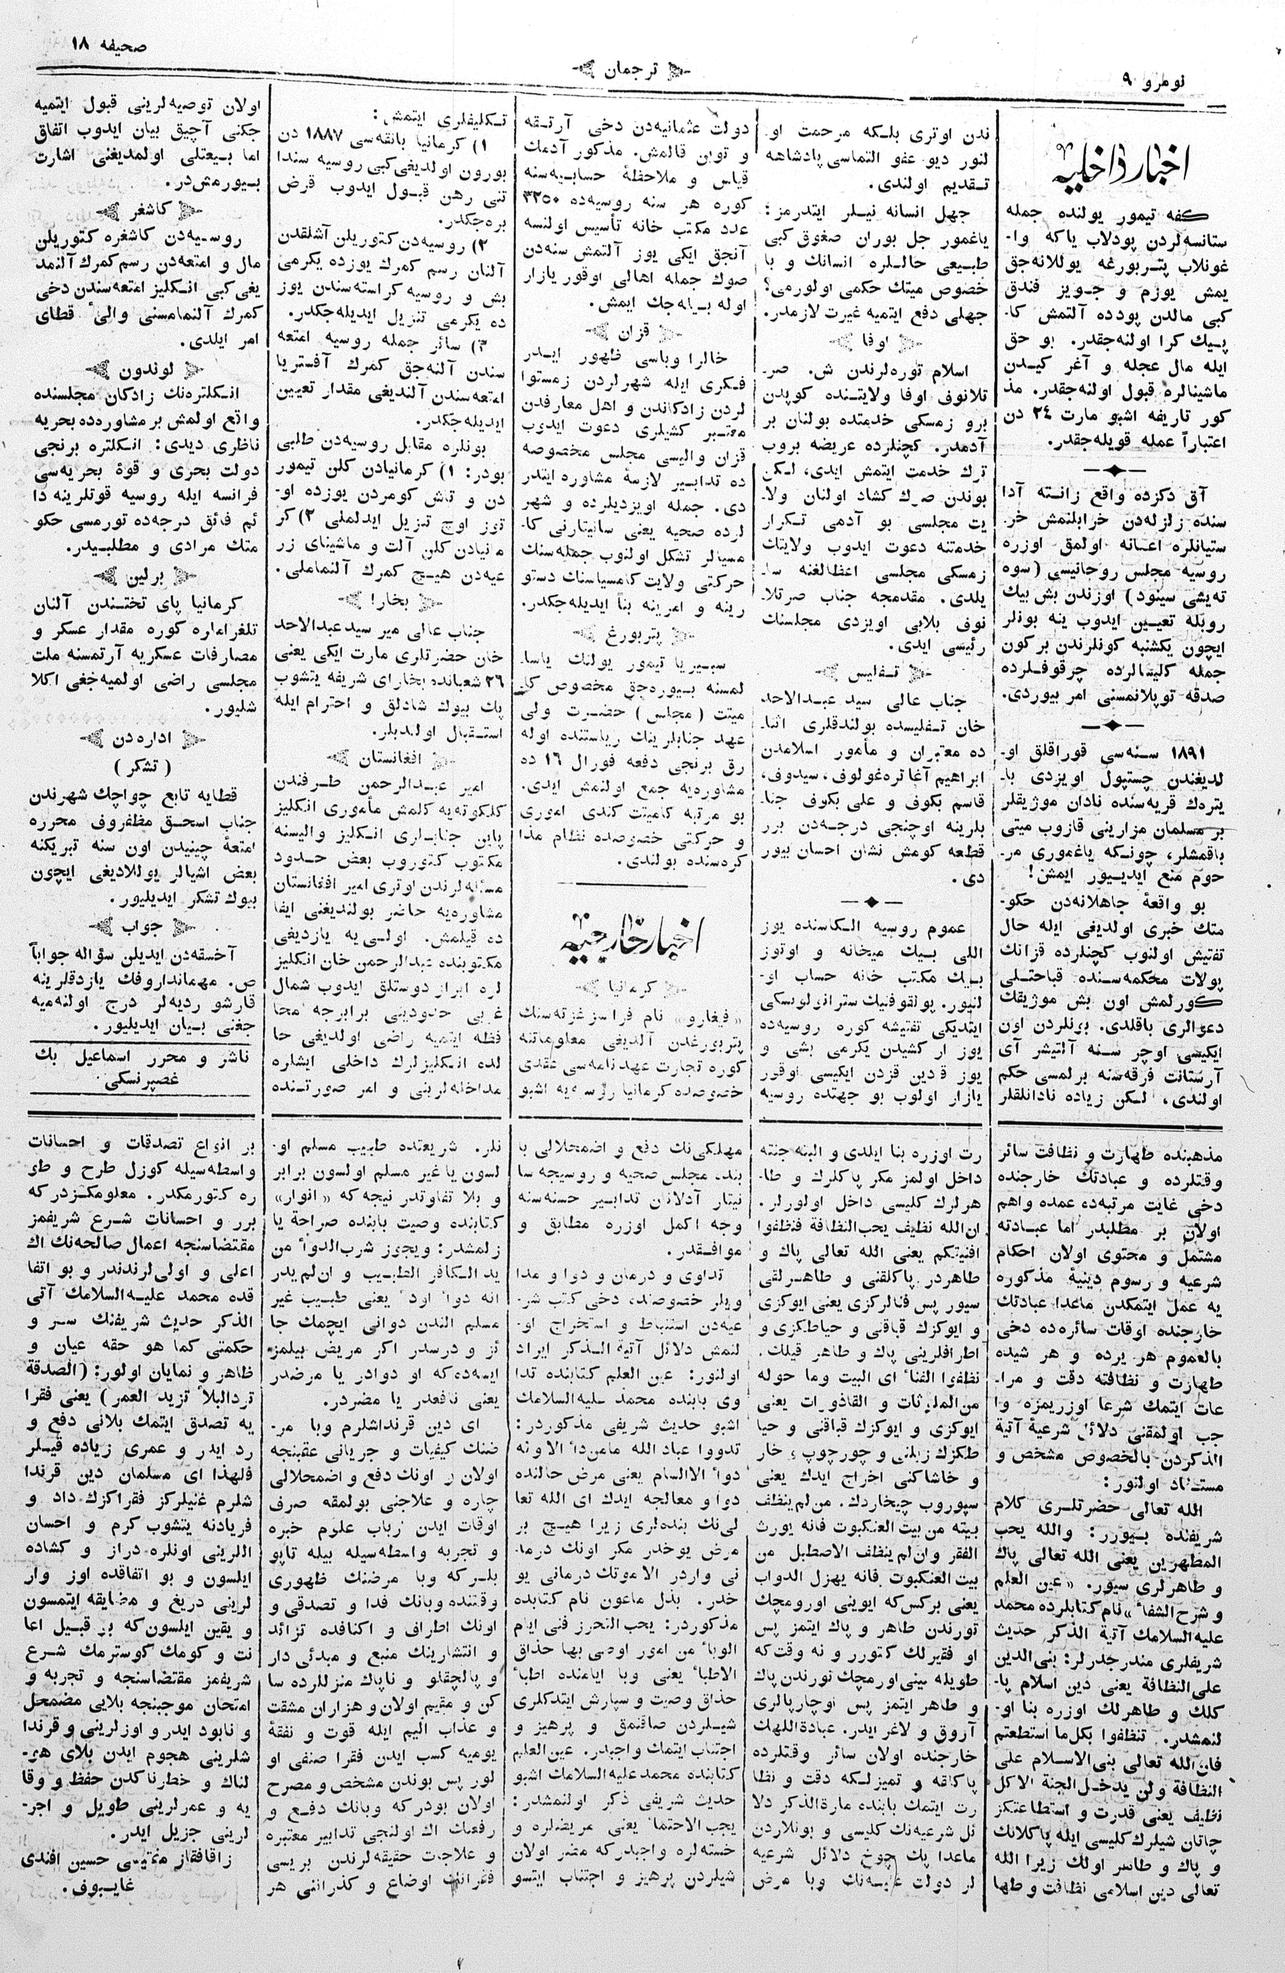 صحيفه ١٨
ترجمان
نومرو ٩
اخبار داخليه
كفه تيمور يولنده جمله
ستانسه‌لردن پودلاب ياكه وا-
غونلاب پتربورغه يوللانه‌جق
يمش يوزم و جويز فندق
كبى مالدن پودده آلتمش كا-
پيك كرا اولنه‌جقدر. بو حق
ايله مال عجله و آغر كيدن
ماشينالره قبول اولنه‌جقدر. مذ
كور تاريفه اشبو مارت ٢٤ دن
اعتباراً عمله قويله‌جقدر.
آق دكزده واقع زانته آدا
سنده زلزله‌دن خرابلنمش خر-
ستيانلره اعانه اولمق اوزره
روسيه مجلس روحانيسى (سوه
ته‌يشى سينود) اوزندن بش بيك
روبله تعيين ايدوب ينه بونلر
ايچون يكشنبه كونلرندن بركون
جمله كليسالرده چرقوفلرده
صدقه توپلانمسنى امر بيوردى.
١٨٩١ سنه‌سى قوراقلق او-
لديغندن چستپول اويزدى با-
يتره‌ك قريه‌سنده نادان موژيقلر
بر مسلمان مزارينى قازوب ميتى
باقمشلر، چونكه ياغمورى مر-
حوم منع ايديور ايمش!
بو واقعهٔ جاهلانه‌دن حكو-
متك خبرى اولديغى ايله حال
تفتيش اولنوب كچنلرده قزانك
پولات محكمه‌سنده قباحتلى
كورلمش اون بش موژيقك
دعوالرى باقلدى. برنلردن اون
ايكيسى اوچر سنه آلتيشر آى
آرستانت فرقه‌سنه برلمسى حكم
اولندى، لكن زياده نادانلقلر
ندن اوترى بلكه مرحمت او-
لنور ديو عفو التماسى پادشاهه
تقديم اولندى.
جهل انسانه نيلر ايتدرمز؛
ياغمور جل بوران صغوق كبى
طبيعى حاللره انسانك و با
خصوص ميتك حكمى اولورمى؟
جهلى دفع ايتميه غيرت لازمدر.
اوفا
اسلام توره‌لرندن ش. صر-
تلانوف اوفا ولايتنده كوپدن
برو زمسكى خدمتده بولنان بر
آدمدر. كچنلرده عريضه بروب
ترك خدمت ايتمش ايدى، لكن
بوندن صرك كشاد اولنان ولا-
يت مجلسى بو آدمى تكرار
خدمتنه دعوت ايدوب ولايتك
زمسكى مجلسى اعظالغنه سا-
يلدى. مقدمجه جناب صرتلا-
نوف بلابى اويزدى مجلسنك
رئيسى ايدى.
تفليس
جناب عالى سيد عبدالاحد
خان تفليسده بولندقلرى اثنا-
ده معتبران و مأمور اسلامدن
ابراهيم آغا نره‌غولوف، سيدوف،
قاسم بكوف و على بكوف جنا-
بلرينه اوچنجى درجه‌دن برر
قطعه كومش نشان احسان بيور
دى.
عموم روسيه الكاسنده يوز
اللى بيك ميخانه و اوتوز
بيك مكتب خانه حساب او-
لنيور. پولقوفنيك سترانولوبسكى
ايتديكى تفتيشه كوره روسيه‌ده
يوز ار كشيدن يكرمى بشى و
يوز قدين قزدن ايكيسى اوقور
يازار اولوب بو جهتده روسيه
دولت عثمانيه‌دن دخى آرتقه
و توبن قالمش. مذكور آدمك
قياس و ملاحظهٔ حسابيه‌سنه
كوره هر سنه روسيه‌ده ٣٣٥٠
عدد مكتب خانه تأسيس اولنسه
آنجق ايكى يوز آلتمش سنه‌دن
صوك جمله اهالى اوقور يازار
اوله بيله‌جك ايمش.
قزان
خالرا وباسى ظهور ايدر
فكرى ايله شهرلردن زمستوا
لردن زادكاندن و اهل معارفدن
معتبر كشيلرى دعوت ايدوب
قزان واليسى مجلس مخصوصه
ده تدابير لازمهٔ مشاوره ايتدر
دى. جمله اويزديلرده و شهر
لرده صحيه يعنى سانيتارنى كا-
مسيالر تشكل اولنوب جمله‌سنك
حركتى ولايت كامسياسنك دستو
رينه و امرينه بناً ايديله‌جكدر.
پتربورغ
سبيريا تيمور يولنك ياسا-
لمسنه بيوره‌جق مخصوص كا-
ميتت (مجلس) حضرت ولى
عهد جنابلرينك رياستنده اوله
رق برنجى دفعه فورال ١٦ ده
مشاوره‌يه جمع اولنمش ايدى.
بو مرتبه كاميتت كندى امورى
و حركتى خصوصده نظام مذا
كره‌سنده بولندى.
اخبار خارجيه
كرمانيا
«فيغارو» نام فرانسز غزته‌سنك
پتربورغدن آلديغى معلوماتنه
كوره تجارت عهدنامه‌سى عقدى
خصوصده كرمانيا روسيه‌يه اشبو
تكليفلرى ايتمش:
١) كرمانيا بانقه‌سى ١٨٨٧ دن
بورون اولديغى كبى روسيه سندا
تنى رهن قبول ايدوب قرض
بره‌جكدر.
٢) روسيه‌دن كتوريلن آشلقدن
آلنان رسم كمرك يوزده يكرمى
بش و روسيه كراسته‌سندن يوز
ده يكرمى تنزيل ايديله‌جكدر.
٣) سائر جمله روسيه امتعه
سندن آلنه‌جق كمرك آفستريا
امتعه‌سندن آلنديغى مقدار تعيين
ايديله‌جكدر.
بونلره مقابل روسيه‌دن طلبى
بودر: ١) كرمانيادن كلن تيمور
دن و تاش كومردن يوزده او-
توز اوچ تنزيل ايدلملى ٢) كر
مانيادن كلن آلت و ماشيناى زر
عيه‌دن هيچ كمرك آلنماملى.
بخارا
جناب عالى مير سيد عبدالاحد
خان حضرتلرى مارت ايكى يعنى
٢٦ شعبانده بخاراى شريفه يتشوب
پك بيوك شادلق و احترام ايله
استقبال اولنديلر.
افغانستان
امير عبدالرحمن طرفندن
كلكوته‌يه كلمش مأمورى انكليز
پابن جنابلرى انكليز واليسنه
مكتوب كتوروب بعض حدود
مسأله‌لرندن اوترى امير افغانستان
مشاوره‌يه حاضر بولنديغنى ايفا
ده قيلمش. اولسى‌يه يازديغى
مكتوبنده عبدالرحمن خان انكليز
لره ابراز دوستلق ايدوب شمال
غربى حدودينى برابرجه محا
فظه ايتميه راضى اولديغى حا
لده انكليزلرك داخلى ايشلره
مداخله‌لرينى و امر صورتنده
اولان توصيه‌لرينى قبول ايتميه
جكنى آچيق بيان ايدوب اتفاق
اما بيعتلى اولمديغنى اشارت
بيورمش‌در.
كاشغر
روسيه‌دن كاشغره كتوريلن
مال و امتعه‌دن رسم كمرك آلنمد
يغى كبى انكليز امتعه‌سندن دخى
كمرك آلنمامسنى والىٔ قطاى
امر ايلدى.
لوندون
انكلتره‌نك زادكان مجلسنده
واقع اولمش بر مشاوره‌ده بحريه
ناظرى ديدى: انكلتره برنجى
دولت بحرى و قوهٔ بحريه‌سى
فرانسه ايله روسيه قوتلرينه دا
ئم فائق درجه‌ده تورمسى حكو
متك مرادى و مطلبيدر.
برلين
كرمانيا پاى تختندن آلنان
تلغرامله كوره مقدار عسكر و
مصارفات عسكريه آرتمسنه ملت
مجلسى راضى اولميه‌جغى اكلا
شليور.
اداره‌دن
(تشكر)
قطايه تابع چواچك شهرندن
جناب اسحق مظفروف محرره
امتعهٔ چينيدن اون سنه تبريكنه
بعض اشيالر يوللاديغى ايچون
بيوك تشكر ايديليور.
جواب
آخسقه‌دن ايديلن سؤاله جواباً
ص. مهمانداروفك يازدقلرينه
قارشو رديه‌لر درج اولنه‌ميه
جغنى بيان ايديليور.
ناشر و محرر اسماعيل بك
غصپرنسكى
مذهبنده طهارت و نظافت سائر
وقتلرده و عبادتك خارجنده
دخى غايت مرتبه‌ده عمده واهم
اولان بر مطلبدر اما عبادته
مشتمل و محتوى اولان احكام
شرعيه و رسوم دينيهٔ مذكوره
يه عمل ايتمكدن ماعدا عبادتك
خارجنده اوقات سائره‌ده دخى
بالعموم هر يرده و هر شيده
طهارت و نظافته دقت و مرا-
عات ايتمك شرعا اوزريمزه وا
جب اولمقنى دلائل شرعيهٔ آتية
الذكردن بالخصوص مشخص و
مستفاد اولنور:
الله تعالى حضرتلرى كلام
شريفنده بيورر: والله يحب
المطهرين يعنى الله تعالى پاك
و طاهرلرى سيور. «عين العلم
و شرح الشفاء» نام كتابلرده محمد
عليه السلامك آتية الذكر حديث
شريفلرى مندرجدرلر: بنى الدين
على النظافة يعنى دين اسلام پا-
كلك و طاهرلك اوزره بنا او-
لنمشدر. تنظفوا بكل ما استطعتم
فان الله تعالى بنى الاسلام على
النظافة ولن يدخل الجنة الا كل
نظيف يعنى قدرت و استطاعتكز
چاتان شيلرك كليسى ايله پاكلانك
و پاك و طاهر اولك زيرا الله
تعالى دين اسلامى نظافت و طها
رت اوزره بنا ايلدى و البته جنته
داخل اولمز مكر پاكلرك و طا-
هرلرك كليسى داخل اولورلر.
ان الله نظيف يحب النظافة فنظفوا
افنيتكم يعنى الله تعالى پاك و
طاهردر پاكلقنى و طاهرلقى
سيور پس فنالركزى يعنى ايوكزى
و ايوكزك قباقنى و حياطكزى و
اطرافلرينى پاك و طاهر قيلك.
نظفوا الفناء اى البيت وما حوله
من الملوثات و القاذورات يعنى
ايوكزى و ايوكزك قباقنى و حيا
طكزك زبلنى و چورچوپ، خار
و خاشاكنى اخراج ايدك يعنى
سپوروب چيخاردك. من لم ينظف
بيته من بيت العنكبوت فانه يورث
الفقر وان لم ينظف الاصطبل من
بيت العنكبوت فانه يهزل الدواب
يعنى بركس‌كه ايوينى اورومچك
تورندن طاهر و پاك ايتمز پس
او فقيرلك كتورر و نه وقت‌كه
طويله سينى اورمچك تورندن پاك
و طاهر ايتمز پس اوچارپالرى
آروق و لاغر ايدر. عبادة اللهك
خارجنده اولان سائر وقتلرده
پاكاقه و تميزلكه دقت و نظا
رت ايتمك بابنده مارة الذكر دلا
ئل شرعيه‌نك كليسى و بونلاردن
ماعدا پك چوخ دلائل شرعيه
لر دولت عيسه‌نك وبا مرض
مهلكى‌نك دفع و اضمحلالى با
بنده مجلس صحيه و روسيجه سا
نيتار آدلانان تدابير حسنه‌سنه
وجه اكمل اوزره مطابق و
موافقدر.
تداوى و درمان و دوا و مدا
ويلر خصوصده، دخى كتب شر-
عيه‌دن استنباط و استخراج او-
لنمش دلائل آتية الذكر ايراد
اولنور: عين العلم كتابنده تدا
وى بابنده محمد عليه السلامك
اشبو حديث شريفى مذكوردر:
تداووا عباد الله مامن داء الا وله
دواء الا السام يعنى مرض حالنده
دوا و معالجه ايدك اى الله تعا
لى‌نك بنده‌لرى زيرا هيچ بر
مرض يوخدر مكر اونك درما-
نى واردر الا موتك درمانى يو
خدر. بذل ماعون نام كتابده
مذكوردر: يحب التحرز فى ايام
الوباء من امور اوصى بها حذاق
الاطباء يعنى وبا ايامنده اطباء
حذاق وصيت و سپارش ايتدكلرى
شيلردن صاقنمق و پرهيز و
اجتناب ايتمك واجبدر. عين العلم
كتابنده محمد عليه السلامك اشبو
حديث شريفى ذكر اولنمشدر:
يجب الاحتماء يعنى مريضلره و
خسته‌لره واجبدركه مضر اولان
شيلردن پرهيز و اجتناب ايتسو
نلر. شريعتده طبيب مسلم او-
لسون يا غير مسلم اولسون برابر
و بلا تفاوتدر نيجه‌كه «انوار»
كتابنده وصيت بابنده صراحة يا
زلمشدر: ويجوز شرب الدواء من
يد الكافر الطبيب و ان لم يدر
انه دواء او داء يعنى طبيب غير
مسلم الندن دوانى ايچمك جا
ئز و درسدر اكر مريض بيلمز
ايسه‌ده‌كه او دوادر يا مرضدر
يعنى نافعدر يا مضردر.
اى دين قرنداشلرم وبا مر-
ضنك كيفيات و جريانى عقبنجه
اولان و اونك دفع و اضمحلالى
چاره و علاجنى بولمقه صرف
اوقات ايدن ارباب علوم خبره
و تجربه واسطه‌سيله بيله تاپو
بلركه وبا مرضنك ظهورى
وقتنده وبانك فدا و تصدقى و
اونك اطراف و اكنافده تزائد
و انتشارينك منبع و مبدئى دار
و پالچقلو و ناپاك منزللرده سا
كن و مقيم اولان و هزاران مشقت
و عذاب اليم ايله قوت و نفقهٔ
يوميه كسب ايدن فقرا صنفى او
لور پس بوندن مشخص و مصرح
اولان بودركه وبانك دفع و
رفعنك اك اولنجى تدابير معتبره
و علاجات حقيقه‌لرندن بريسى
فقرانك اوضاع و كذرانى هر
بر انواع تصدقات و احسانات
واسطه‌سيله كوزل طرح و طو
ره كتورمكدر. معلومكزدركه
برر و احسانات شرع شريفمز
مقتضاسنجه اعمال صالحه‌نك اك
اعلى و اولى‌لرندندر و بو اتفا
قده محمد عليه السلامك آتى
الذكر حديث شريفنك سر و
حكمتى كما هو حقه عيان و
ظاهر و نمايان اولور: (الصدقة
ترد البلاء تزيد العمر) يعنى فقرا
يه تصدق ايتمك بلانى دفع و
رد ايدر و عمرى زياده قيلر
فلهذا اى مسلمان دين قرندا
شلرم غنيلركز فقراكزك داد و
فريادنه يتشوب كرم و احسان
اللرينى اونلره دراز و كشاده
ايلسون و بو اتفاقده اوز وار
لرينى دريغ و مضايقه ايتمسون
و يقين ايلسون‌كه بو قبيل اعا
نت و كومك كوسترمك شرع
شريفمز مقتضاسنجه و تجربه و
امتحان موجبنجه بلايى مضمحل
و نابود ايدر و اوزلرينى و قرندا
شلرينى هجوم ايدن بلاى هو-
لناك و خطرناكدن حفظ و وقا
يه و عمرلرينى طويل و اجر-
لرينى جزيل ايدر.
زاقافقاز مفتيسى حسين افندى
غايبوف.